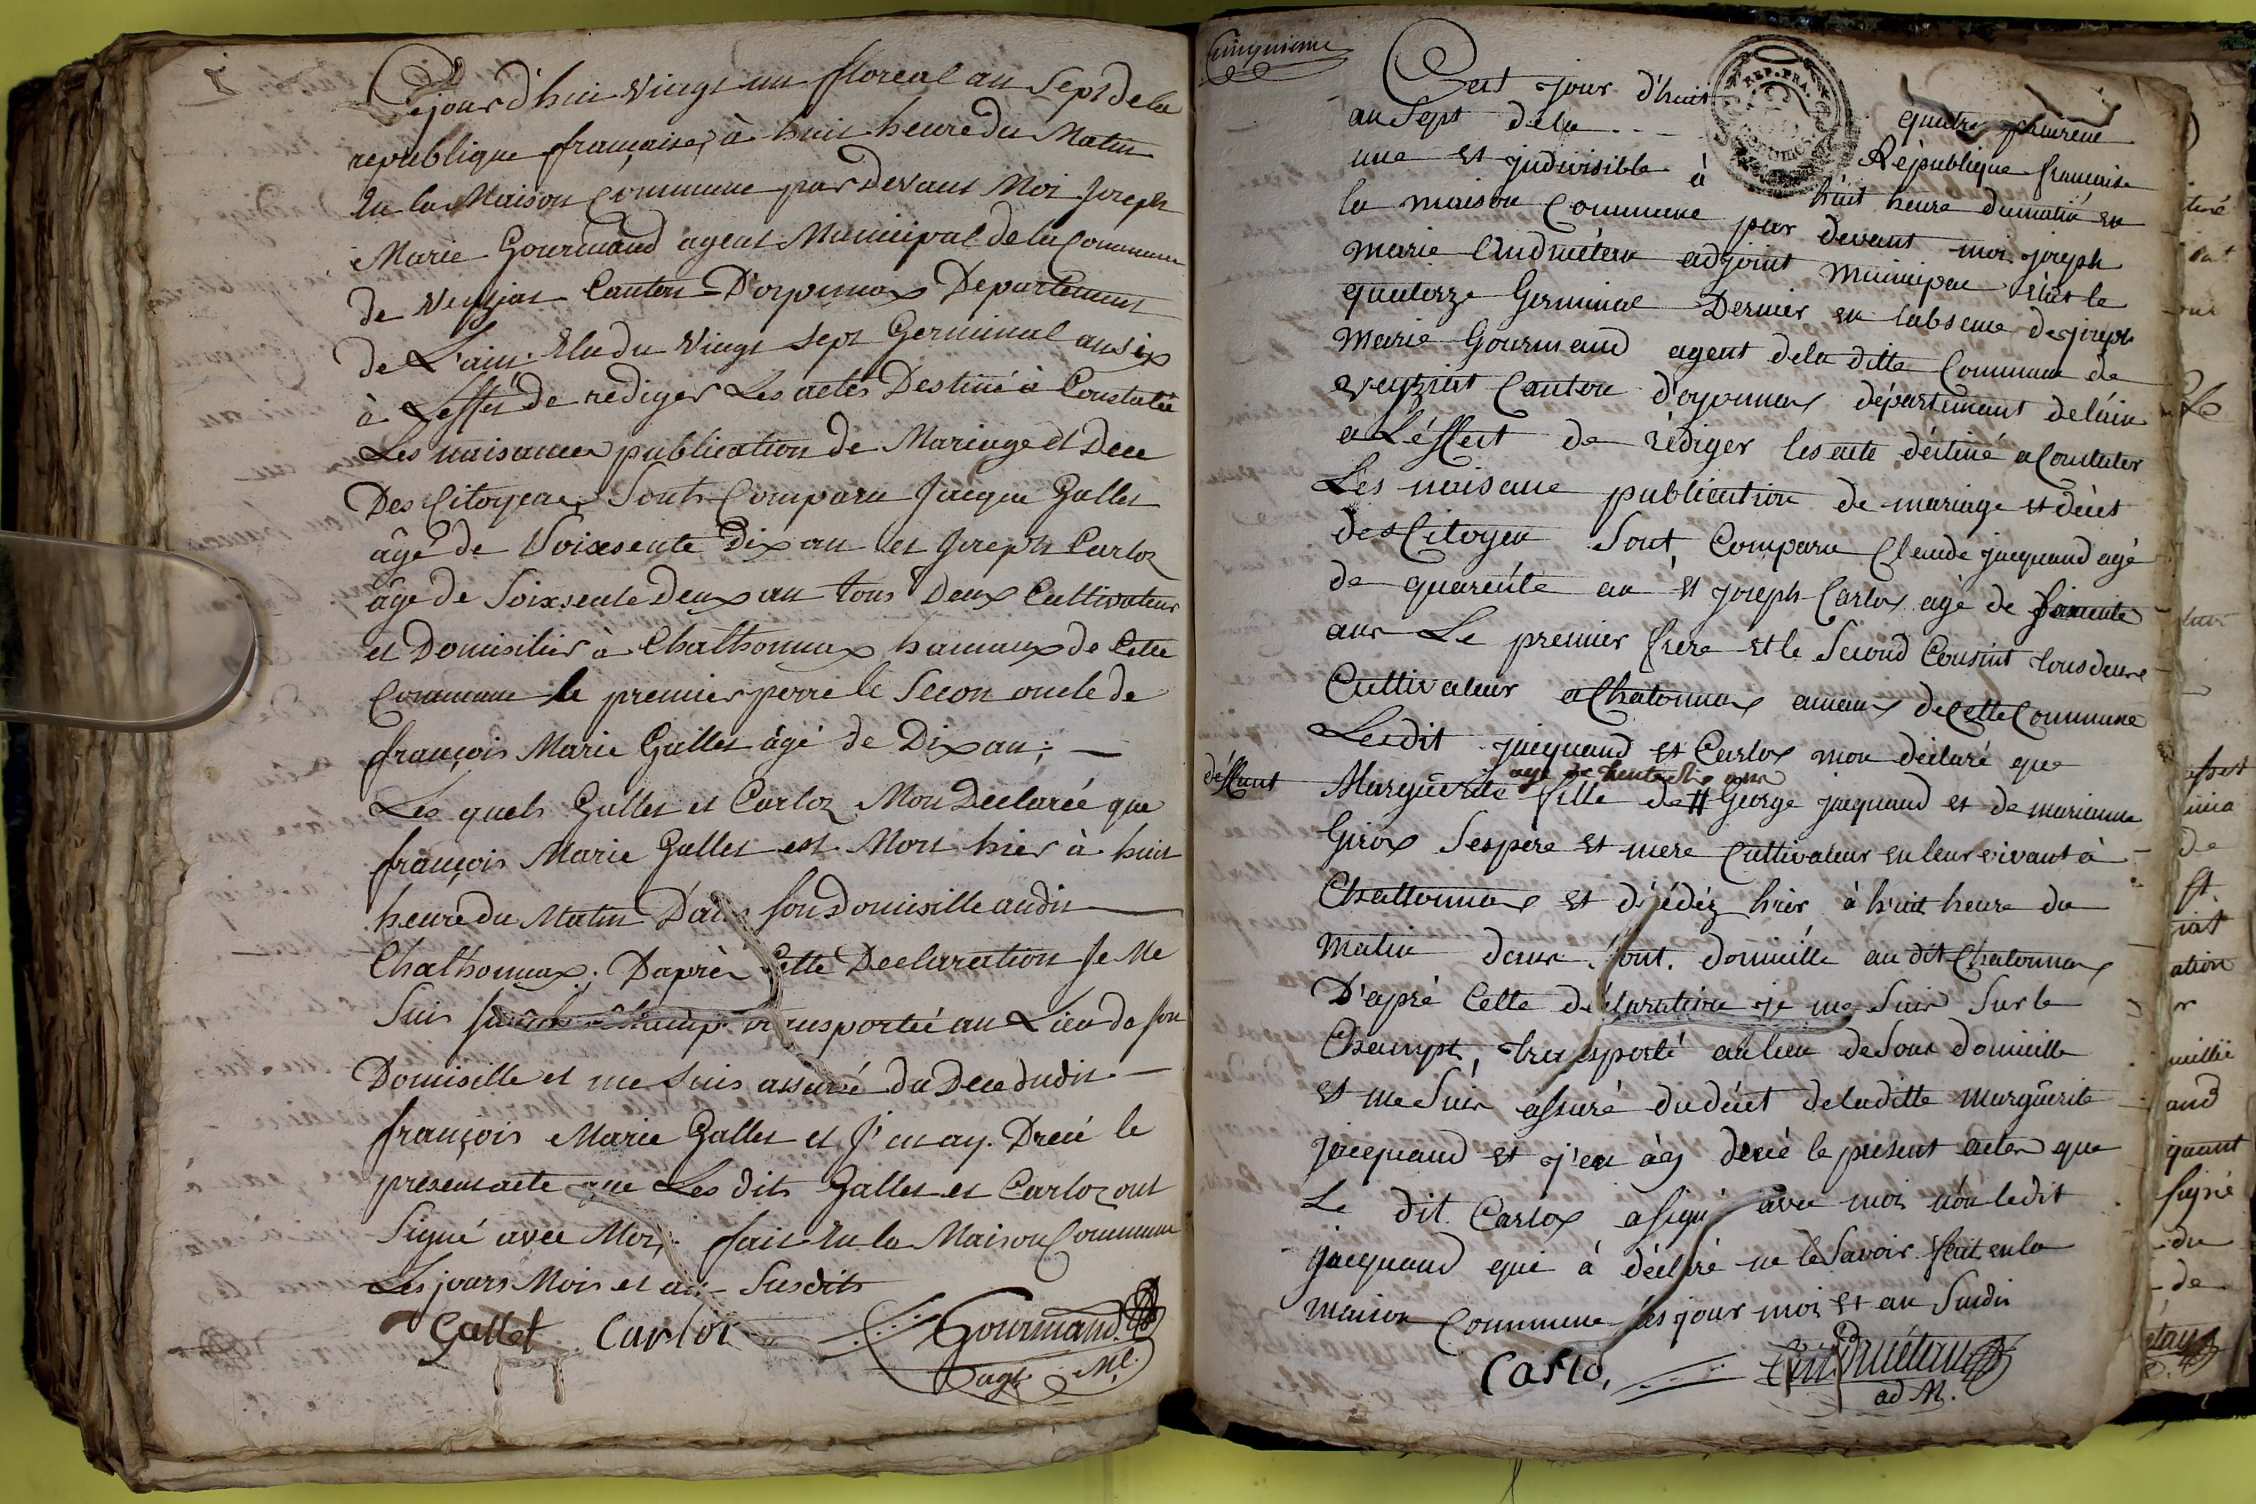 Cejourd'hui vingt un floreal an Sept de la
republique française, à huit heure du Matin
En la Maison Commune par Devant Moi Joseph
Marie Gourmand agent Municipal de la Commune
de Veyziat Canton D'oyonnax Departement
de L'ain. Elu du Vingt Sept Germinal an six
à Leffet de rediger Les actes Destiné à Constaté
Les naisances publication de Mariage et Dece
Des Citoyens Sont Comparu Jacque Gallet
âgé de Soixsente Dix an et Joseph Carloz
âge de Soixsente Deux an tous Deux Cultivateur
et Domisilier à Chathonnax hamaux de Cette
Commune le premier perre le Secon oncle de
françois Marie Gallet âgé de Dix an;
Les quels Gallet et Carloz Mon Declarée que
françois Marie Gallet est Mort hier à huit
heure du Matin Dans son Domisille audit
Chathonnax. D'après Cette Declaration Je Me
Suis sur le Champ transportée au Lieu de son
Domiselle et me Suis assuré du Dece dudit
françois Marie Gallet et J'en ay Drecé le
present acte que Les dits Gallet et Carloz ont
Signé avec Moi fait En la Maison Commune
Les jours Mois et an Susdits
Gallet Carloz Gourmand
agt. Ml.
Cinquieme
Cest jour d'huit quatre
au Sept de la République francaise
une et indivisible à huit heure dumatin en
la maison Commune par devant moi joseph
marie adjoint municipal Elut le
quatorze Germinal Dernier en labsence de joseph
Marie Gourmand agent dela ditte Commune de
veyziat Canton d'oyonnax département delain
a L'éffect de rédiger les acte déstiné a Constater
Les naisance publication de mariage et décet
des Citoyen Sont Comparu Claude jacquand agé
de quarente an et joseph Carlox agé de
ans Le premier frere et le Second Cousint tous deux
Cultivateur a Chatonnax amaux de Cette Commune
Lesdit jacquand et Carlox mon déclaré que
déffunt
agé de trente six ans
Marguerite fille de # George jacquand et de marianne
Girox Sespere et mere Cultivateur en leur vivant à
Chattonnax et décédéz hier à huit heure du
matin dans Sont domicille au dit Chatonnax
D'apré Cette déclaration je me Suis Sur le
Champt, transporté au lieu de Sont domicille
et me Suis assuré du décet de laditte marguerite
jacquand et j'en ày drecé le présent actes que
Le dit Carlox a signé avec moi non ledit
jacquand qui à déclaré ne le Savoir fait en la
maison Commune les jour moi et an Susdit
Carlo,
ad M.